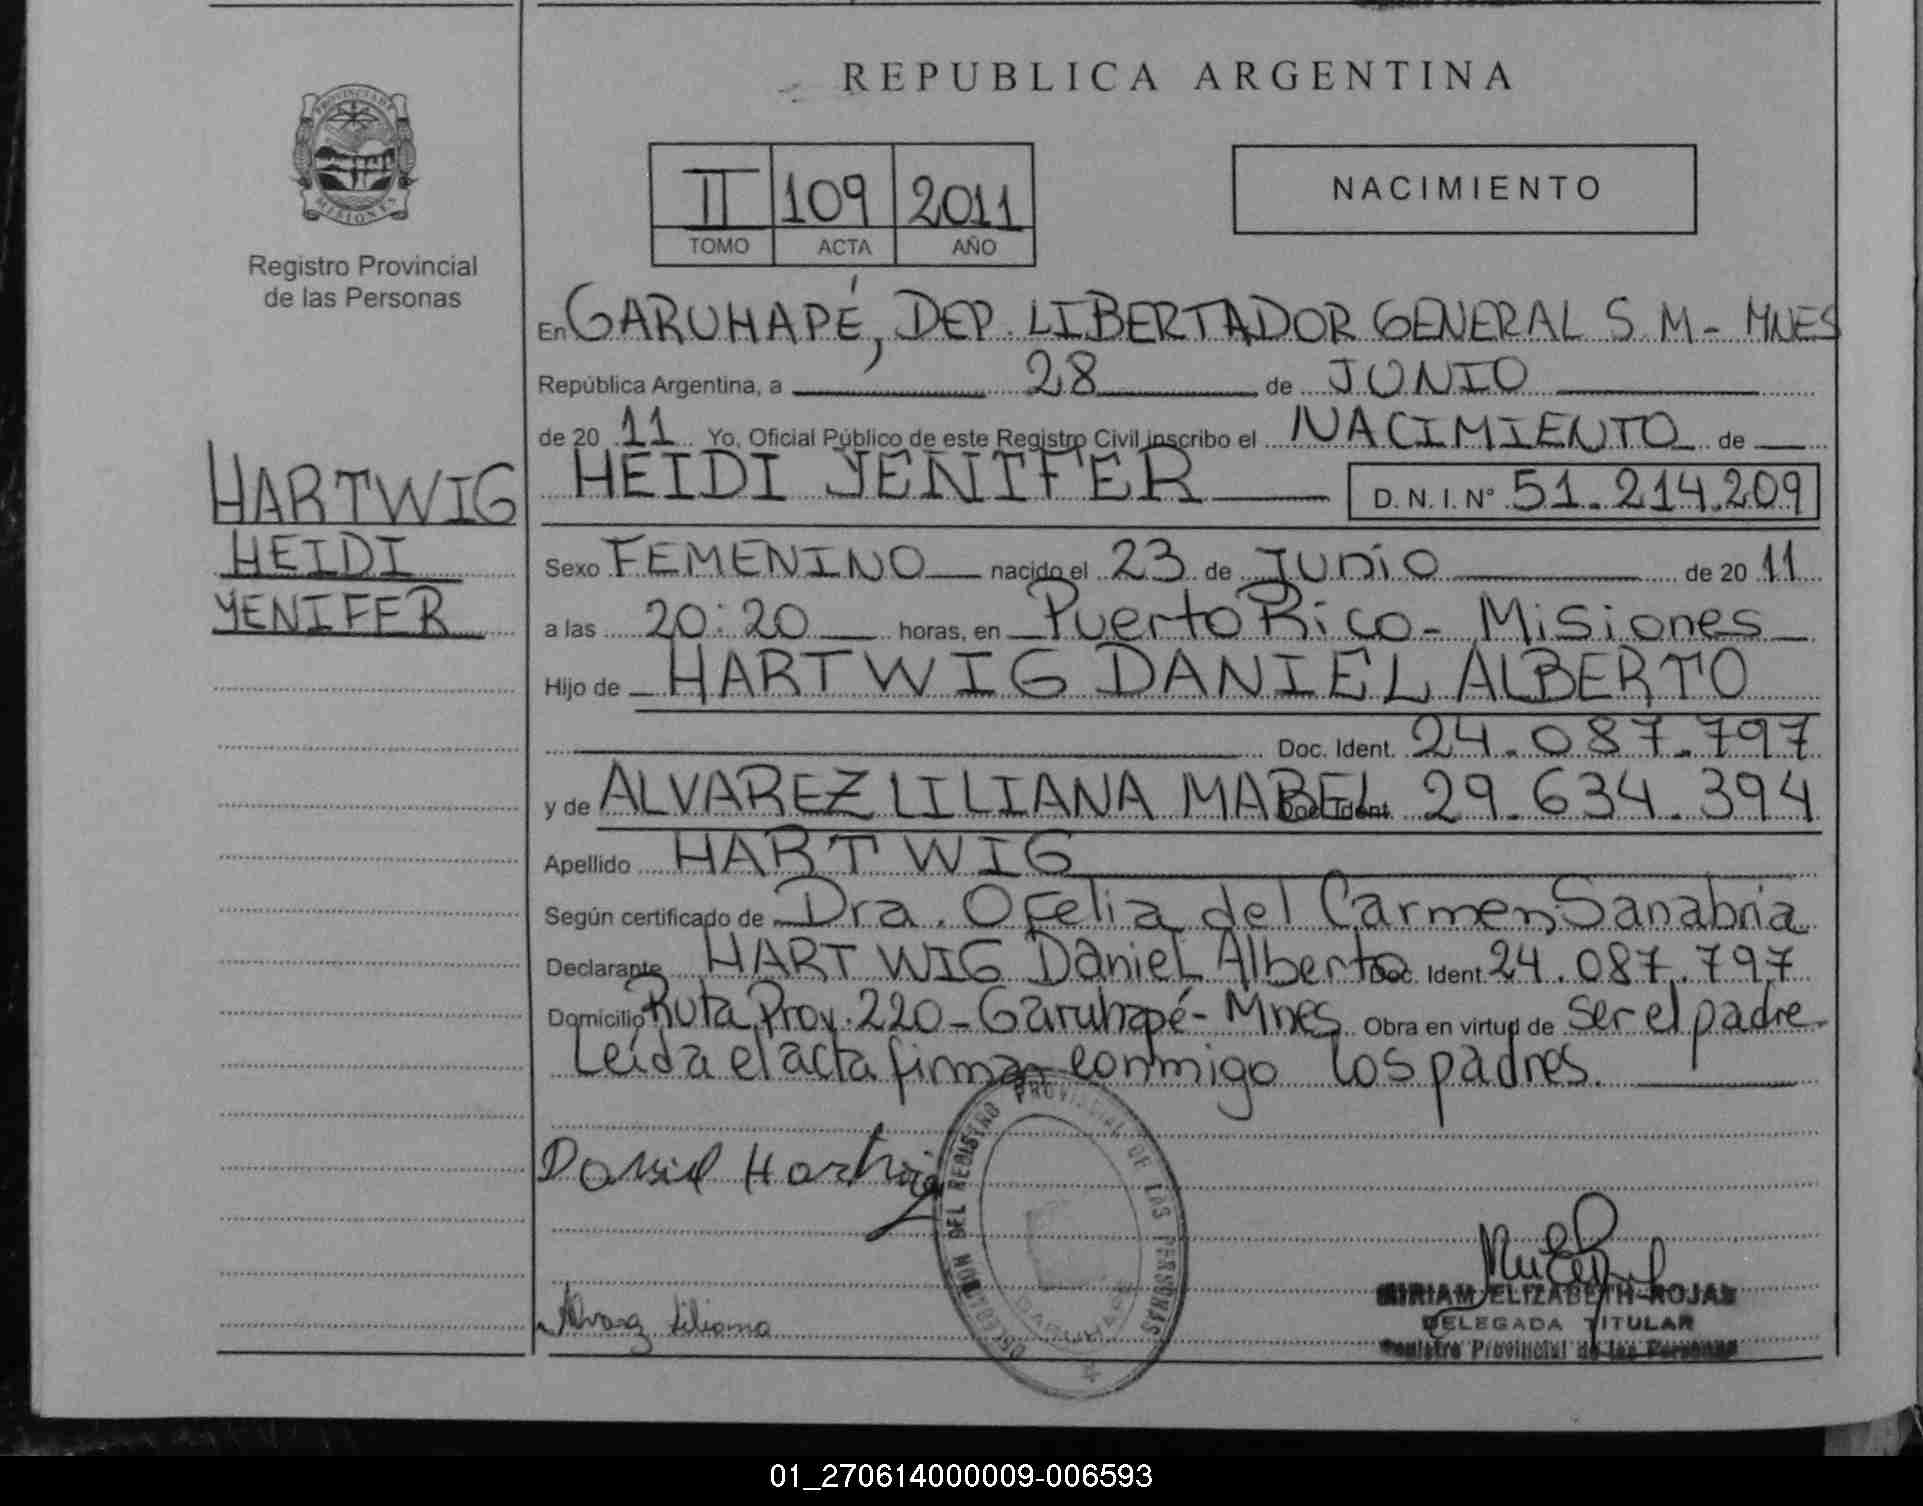 REPUBLICA ARGENTINA
PROVINCIA DE
MISIONES
Registro Provincial
de las Personas
II 109 2011
TOMO ACTA AÑO
NACIMIENTO
En GARUHAPÉ, DEP. LIBERTADOR GENERAL S.M- MNES
República Argentina, a 28 de JUNIO
de 20 11 Yo, Oficial Público de este Registro Civil inscribo el NACIMIENTO de
HEIDI YENIFER D.N.I. Nº 51.214.209
HARTWIG
HEIDI
YENIFER
Sexo FEMENINO nacido el 23 de Junio de 20 11
a las 20:20 horas, en Puerto Rico - Misiones
Hijo de HARTWIG DANIEL ALBERTO
Doc. Ident. 24.087.797
y de ALVAREZ LILIANA MABEL Doc. Ident. 29.634.394
Apellido HARTWIG
Según certificado de Dra. Ofelia del Carmen Sanabria
Declarante HARTWIG Daniel Alberto Doc. Ident. 24.087.797
Domicilio Ruta Prov. 220 - Garuhapé - Mnes Obra en virtud de ser el padre
Leída el acta firman conmigo los padres.
DELEGACION DEL REGISTRO PROVINCIAL DE LAS PERSONAS
GARUHAPE
Daniel Hartwig
Alvarez Liliana
MIRIAM ELIZABETH ROJAS
DELEGADA TITULAR
Registro Provincial de las Personas
01_270614000009-006593